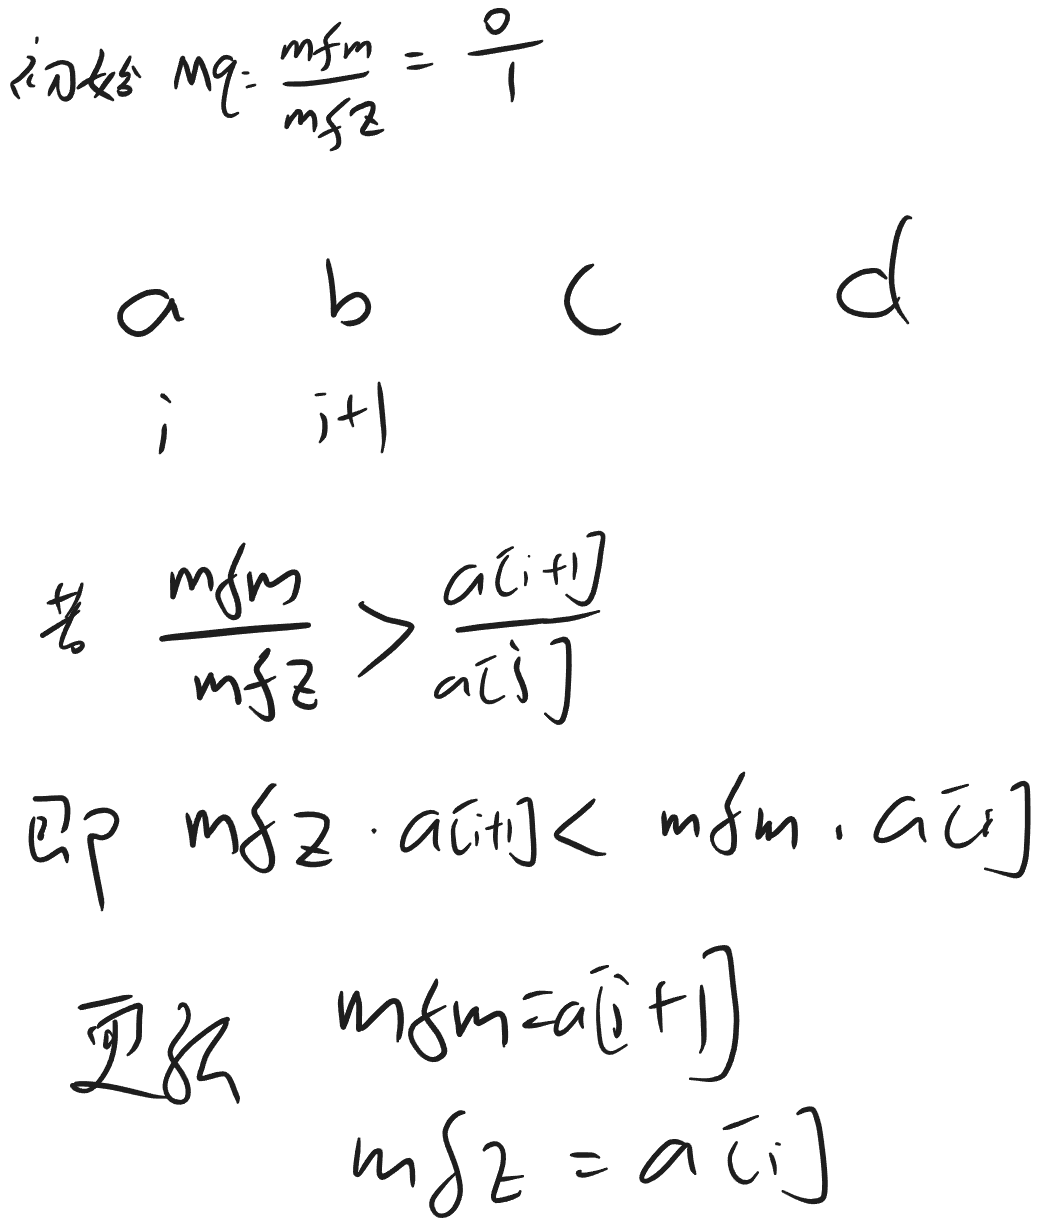 初始 mq = mfm/mfz = 0/1
a b c d
i i+1
若 mfm/mfz > a[i+1]/a[i]
即 mfz · a[i+1] < mfm · a[i]
更新 mfm = a[i+1]
mfz = a[i]